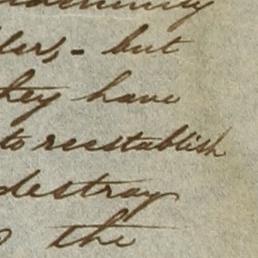 but
they have
to reestablish
destroy
the